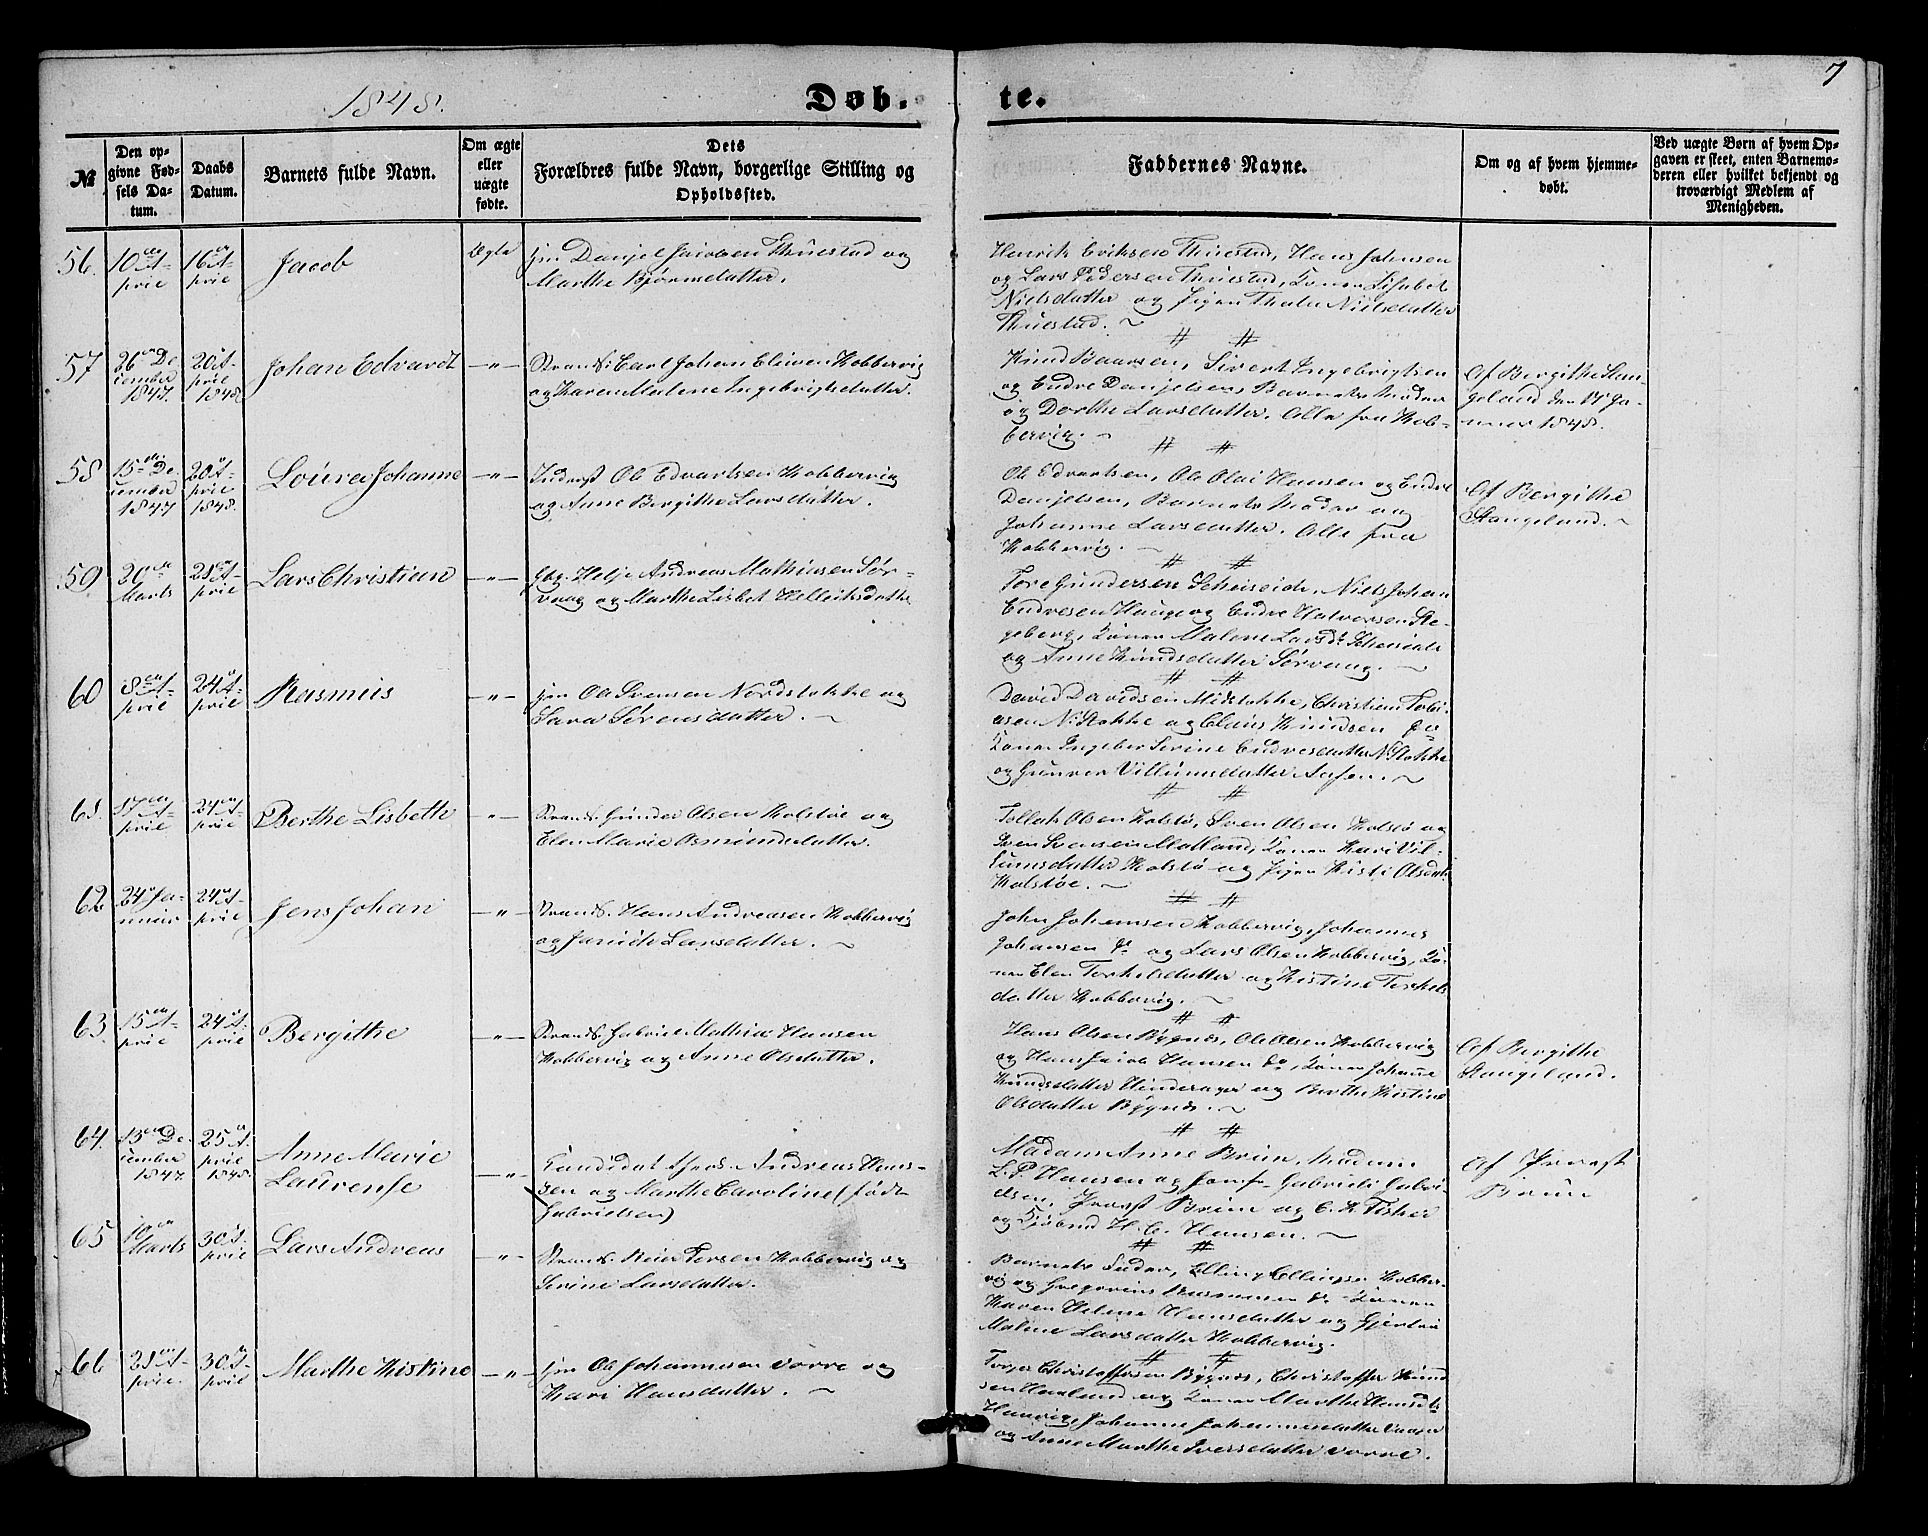 1848.
Døb-
te.
7
№
Den op-
givne Fød-
sels Da-
tum.
Daabs
Datum.
Barnets fulde Navn.
Om ægte
eller
uægte
fødte.
Dets
Forældres fulde Navn, borgerlige Stilling og
Opholdssted.
Faddernes Navne.
Om og af hvem hjemme-
døbt.
Ved uægte Børn af hvem Op-
gaven er skeet, enten Barnemo-
deren eller hvilket bekjendt og
troværdigt Medlem af
Menigheden.
56.
10de A-
pril
16de A-
pril
Jacob
Ægte
Danjel Jacobsen Thuestad og
Marthe Bjørnsdatter.
Henrik Eriksen Thuestad, Hans Johnsen
og Lars Pedersen Thuestad, Konen Lisabet
Nielsdatter og Pigen Thale Nielsdatter
Thuestad. ~
57
26de De
cember
1847.
20 A-
pril
1848
Johan Edvardt
-"-
Strands. Carl Johan Elisen Kobbervig
og Karen Malene Ingebrigtsdatter.
Knud Baarsen, Sivert Ingebrigtsen
og Endre Danjelsen, Barnets Moder
og Dorthe Larsdatter. Alle fra Kob-
bervig. ~
Af Bergithe Stan-
geland den 17 Ja-
nuar 1848.
58
15de De
cember
1847
20 A-
pril
1848.
Loura Johanne
-"-
Inderst Ole Edvartsen Kobbervig
og Anne Bergithe Larsdatter.
Ole Edvartsen, Ole Olai Hansen og Endre
Danjelsen, Barnets Moder og
Johanne Larsdatter. Alle fra
Kobbervig. ~
Af Bergithe
Stangeland. ~
59.
20de
Marts
21 A-
pril
Lars Christian
-"-
Gbg. Helje Andreas Mathiasen Sør-
vaag og Marthe Lisbet Helliksdatter
Tore Gundersen Scheiseide, Niels Johan
Endresen Hauge og Endre Halvorsen Ste-
geberg, Konen Malene Larsdt. Scheiseide
og Anne Knudsdatter Sørvaag. ~
60
8de A-
pril
24 A-
pril
Rasmus
-"-
Ole Svensen Nordstokke og
Sara Sørensdatter. ~
David Davidsen Midstokke, Christian Tobi-
asen N. Stokke og Claus Knudsen do
Konen Ingeber Serine Endresdatter N. Stokke
og Gunver Villumsdatter Aasen. ~
61.
17de A-
pril
24de A-
pril
Berthe Lisbeth
-"-
Strands. Gunder Olsen Kolstøe og
Elen Marie Osmundsdatter.
Tollak Olsen Kolstø, Sven Olsen Kolstø og
Sven Svensen Matland, Konen Kari Vil-
lumsdatter Kolstø og Pigen Kisti Olsdatter
Kolstøe. ~
62
24 Ja-
nuar
24 A-
pril
Jens Johan
-"-
Strands. Hans Andreasen Kobbervig
og Larsdatter. ~
John Johansen Kobbervig, Johannes
Johansen do og Lars Olsen Kobbervig, Ko-
nen Elen Torkelsdatter og Kistine Torkels
datter Kobbervig. ~
63.
15de A-
pril
24 A-
pril
Bergithe
-"-
Strands. Gabriel Mathias Hansen
Kobbervig og Anne Olsdatter.
Hans Olsen Bygnes, Ole Olsen Kobbervig
og Hans Jacob Hansen do, Konen Johanne
Knudsdatter Hinderager og Berthe Kistine
Olsdatter Bygnes. ~
Af Bergithe
Stangeland.
64.
13de De-
cember
1847.
25 A-
pril
1848.
Anne Marie
Laurense
-"-
Candidat theol. Andreas Han-
sen og Marthe Caroline (født
Gabrielsen)
Madam Anne Brun, Madam
L. P. Hansen og Jomfr Gabriele Gabri-
elsen, Provst Brun og C. K. Fisher
og Kjøbmd H. C. Hansen. ~
Af Provst
Brun
65
10de
Marts
30 A-
pril
Lars Andreas
-"-
Strands. Reier Persen Kobbervig og
Serine Larsdatter.
Barnets Fader, Elling Ellingsen Kobber-
vig og Gregorius Rasmussen do Konen
Karen Helene Hansdatter og
Malene Larsdatter Kobbervig.
66
21 A-
pril.
30 A-
pril
Marthe Kistine
-"-
Ole Johannesen Vorre og
Kari Hansdatter. ~
Torger Christoffersen Bygnes, Christoffer Knud
sen Haaland og Konen Marthe Hansdt.
Johanne Johannesdatter
og Anne Marthe Iversdatter Vorre.